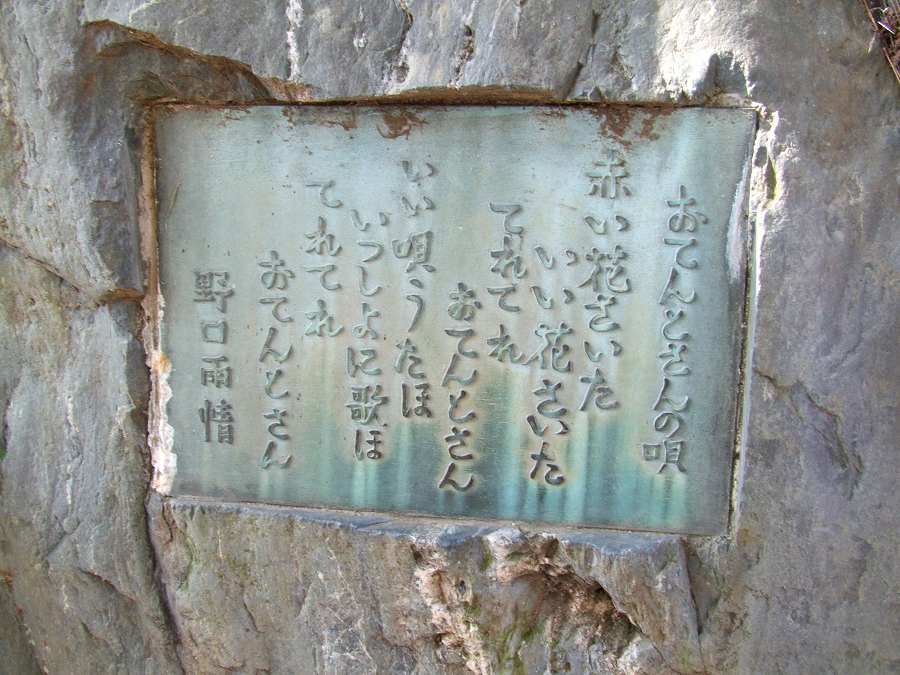 おてんとさんの唄
赤い花さいた
いい花さいた
てれてれ
おてんとさん
いい唄うたほ
いつしよに歌ほ
てれてれ
おてんとさん
野口雨情